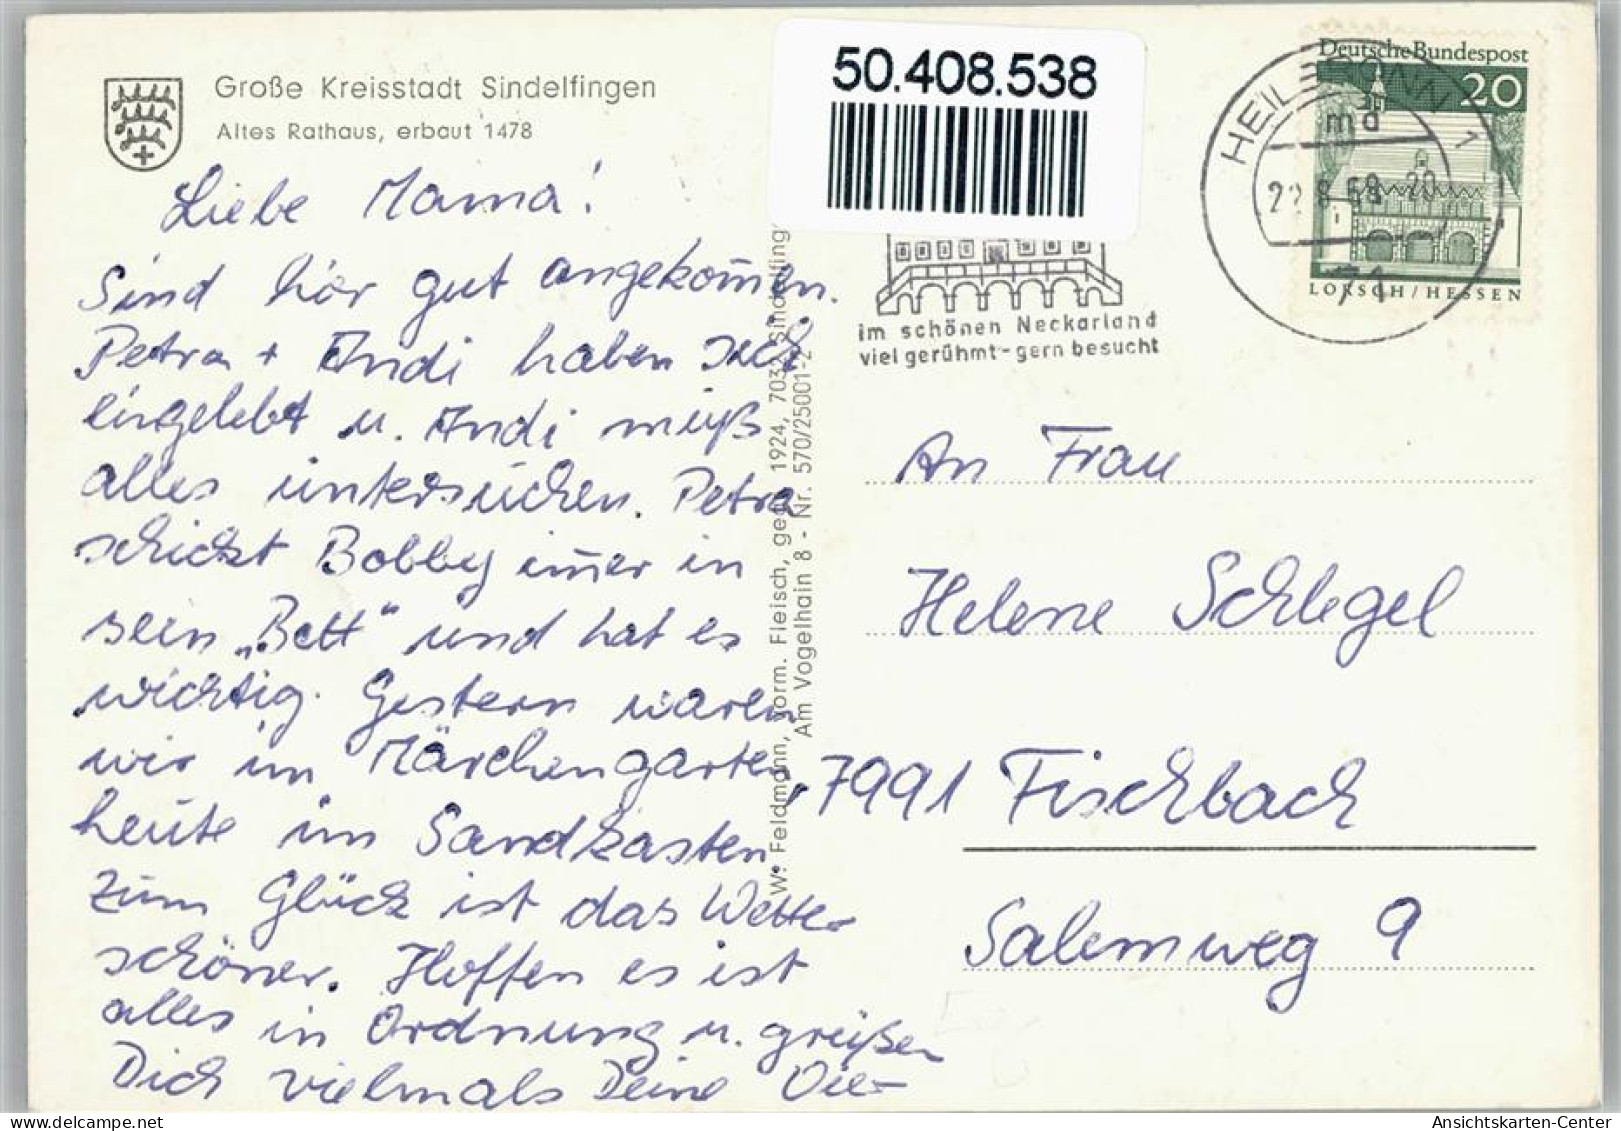 Große Kreisstadt Sindelfingen
Altes Rathaus, erbaut 1478
Liebe Mama!
Sind hier gut angekom̄en.
Petra + Andi haben sich
eingelebt u. Andi muß
alles untersuchen. Petra
schickt Bobby im̄er in
sein „Bett“ und hat es
wichtig. Gestern waren
wir im Märchengarten,
heute im Sandkasten
Zum Glück ist das Wetter
schöner. Hoffen es ist
alles in Ordnung u. grüßen
Dich vielmals Deine
W. Feldmann, vorm. Fleisch, gegr. 1924, 7032 Sindelfing
Am Vogelhain 8 - Nr. 570/25001-2
50.408.538
im schönen Neckarland
viel gerühmt-gern besucht
HEILBRONN 1
md
22.8.68-20
71
Deutsche Bundespost
20
LORSCH/HESSEN
An Frau
Helene Schlegel
7991 Fischbach
Salemweg 9
Ansichtskarten-Center